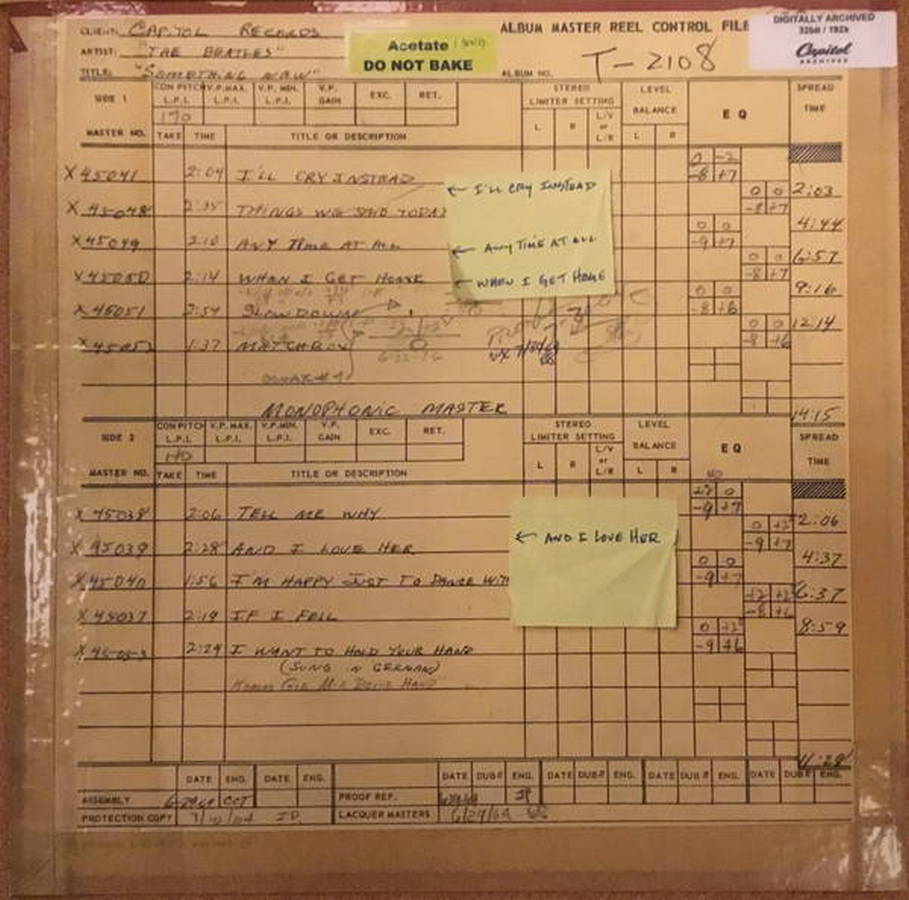 CLIENT: CAPITOL RECORDS
ALBUM MASTER REEL CONTROL FILE
DIGITALLY ARCHIVED
32bit / 192k
Capitol
ARCHIVES
ARTIST: "THE BEATLES"
Acetate
DO NOT BAKE
TITLE: "SOMETHING NEW"
ALBUM NO. T-2108
SIDE 1
CON PITCH L.P.I. V.P.MAX. L.P.I. V.P. MIN. L.P.I. V.P. GAIN EXC. RET.
STEREO LIMITER SETTING LEVEL BALANCE EQ SPREAD TIME
170
L R L/V or L/R L R
MASTER NO. TAKE TIME TITLE OR DESCRIPTION
0 -2
X 45041 2:04 I'LL CRY INSTEAD -8 +7
← I'LL CRY INSTEAD 0 0 2:03
X 45048 2:35 THINGS WE SAID TODAY -8 +7
0 0 4:44
X 45049 2:10 ANY TIME AT ALL ← ANY TIME AT ALL -9 +7
0 0 6:57
X 45050 2:14 WHEN I GET HOME ← WHEN I GET HOME -8 +7
0 0 9:16
X 45051 2:54 SLOW DOWN -8 +6
0 0 12:14
X 45052 1:37 MATCHBOX -8 +6
6-22-76
MONOPHONIC MASTER 14:15
SIDE 2
CON PITCH L.P.I. V.P. MAX. L.P.I. V.P.MIN. L.P.I. V.P. GAIN EXC. RET.
STEREO LIMITER SETTING LEVEL BALANCE EQ SPREAD TIME
L R L/V or L/R L R
MASTER NO. TAKE TIME TITLE OR DESCRIPTION
+2 0
X 45038 2:06 TELL ME WHY -9 +7
0 +2 2:06
X 45039 2:28 AND I LOVE HER ← AND I LOVE HER -9 +7
0 0 4:37
X 45040 1:56 I'M HAPPY JUST TO DANCE WITH -9 +7
+2 +2 6:37
X 45037 2:19 IF I FELL -8 +6
0 +2 8:59
2:24 I WANT TO HOLD YOUR HAND -9 +6
(SUNG IN GERMAN)
DATE ENG. DATE ENG. DATE DUB# ENG. DATE DUB# ENG. DATE DUB # ENG. DATE DUB# ENG.
ASSEMBLY PROOF REF. JP
PROTECTION COPY JP. LACQUER MASTERS 6/29/64